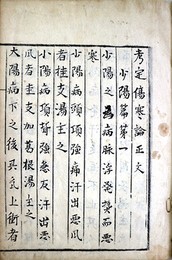 考定傷寒論正文
少陽篇第一
少陽之為病脉浮發熱而惡
寒
少陽病頭項強痛汗出惡風
者桂支湯主之
少陽病項背強急反汗出惡
風者桂支加葛根湯主之
太陽病下之後其氣上衝者